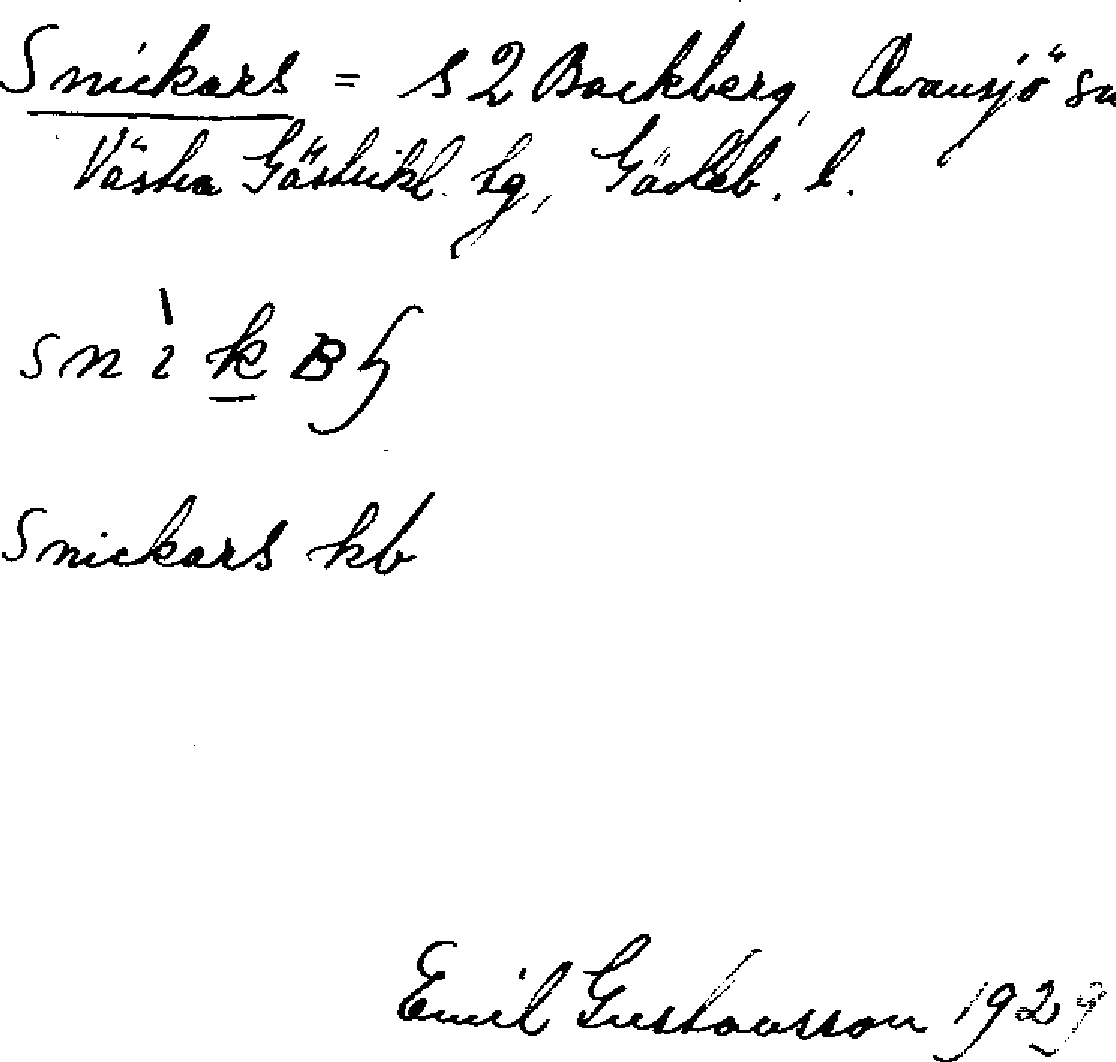 Snickars = s 2 Backberg, Ovansjö sn
Västra Gästrikl. hg, Gävleb. l.
Snickars kb
Emil Gustavsson 192